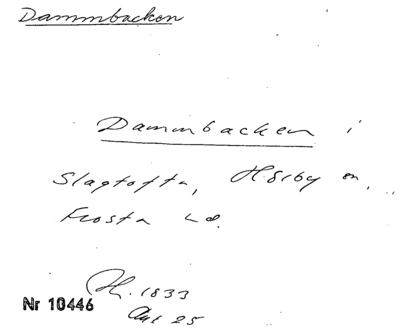 Dammbacken
Dammbacken i
Slagtofta, Hörby sn,
Frosta hd.
H. 1833
Nr 10446
Aug 25